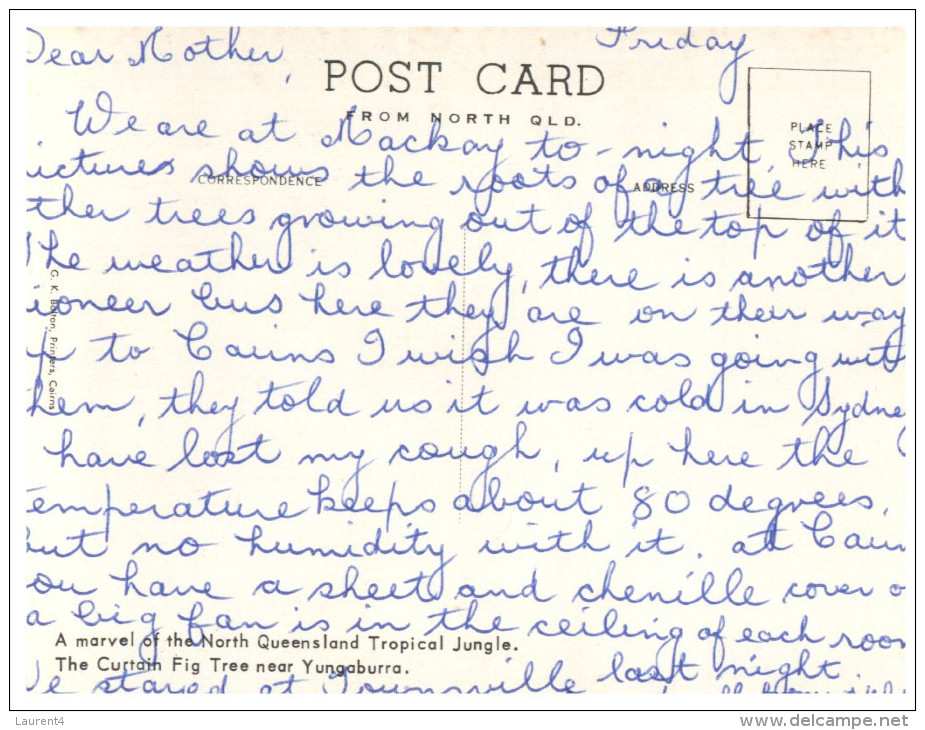 Dear Mother, Friday
POST CARD
FROM NORTH QLD.
PLACE
STAMP
HERE
We are at Mackay to-night, This
ictures shows the roots of a tree with
CORRESPONDENCE
ADDRESS
ther trees growing out of the top of it
The weather is lovely, there is another
ioneer bus here they are on their way
up to Cairns I wish I was going with
hem, they told us it was cold in Sydne
have lost my cough, up here the
temperature keeps about 80 degrees,
but no humidity with it. at Cairn
ou have a sheet and chenille cover o
a big fan is in the ceiling of each room
A marvel of the North Queensland Tropical Jungle.
The Curtain Fig Tree near Yungaburra.
We stayed at Townsville last night.
G. K. Bolton, Printers, Cairns
Laurent4
www.delcampe.net